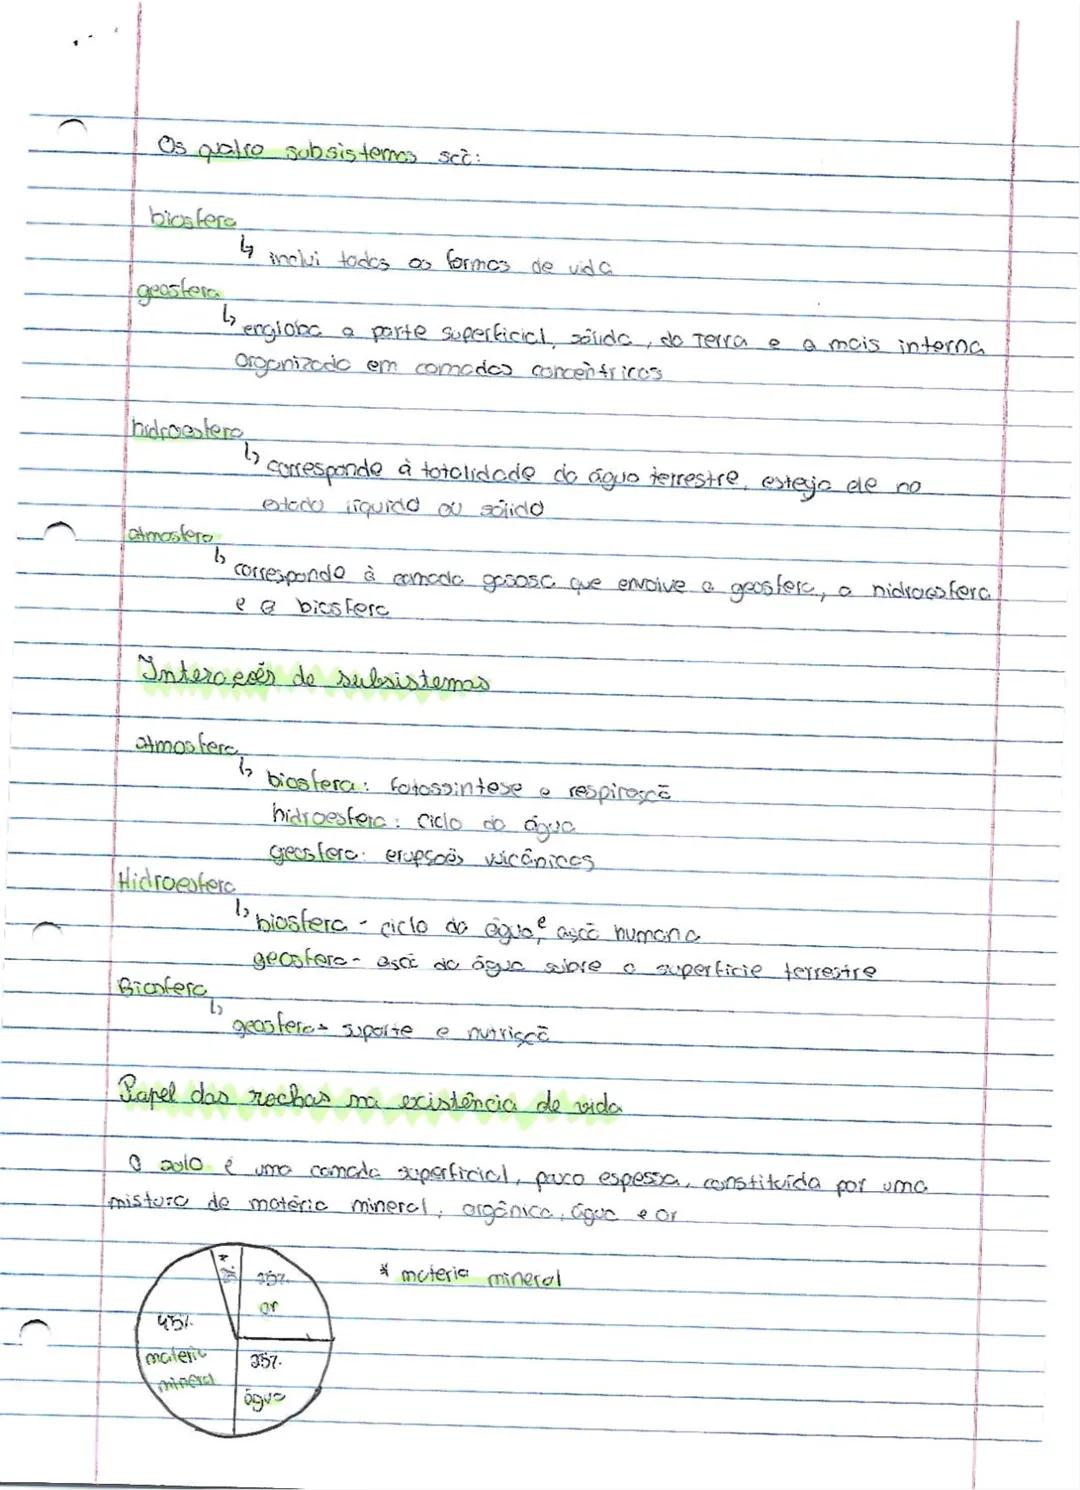 Os quatro subsistemas são:
biosfera
↳ inclui todas as formas de vida
geosfera
↳ engloba a parte superficial, sólida, da Terra e a mais interna
organizada em camadas concêntricas
hidroesfera
↳ corresponde à totalidade da água terrestre, esteja ele no
estado líquido ou sólido
atmosfera
↳ corresponde à camada gasosa que envolve a geosfera, a hidroesfera
e a biosfera
Interações de subsistemas
atmosfera
↳ biosfera: fotossintese e respiração
hidroesfera: ciclo da água
geosfera: erupsoẽs vulcânicas
Hidroesfera
↳ biosfera - ciclo da água, e ação humana
geosfera - ação da água sobre a superficie terrestre
Biosfera
↳ geosfera - suporte e nutrição
Papel das rochas na existência de vida
O solo é uma camada superficial, pouco espessa, constituída por uma
mistura de matéria mineral, orgânica, água e ar
*
5%
25%
ar
* materia mineral
45%
materia
mineral
25%
água